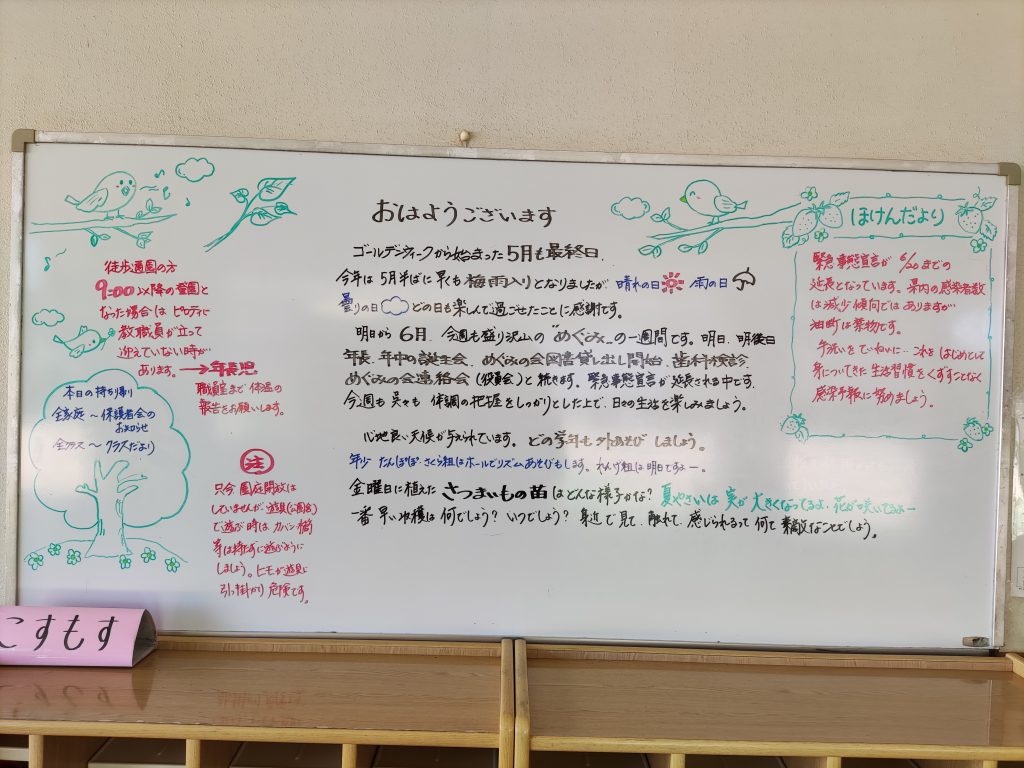 おはようございます
ゴールデンウィークから始まった5月も最終日。
今年は5月半ばに早も梅雨入りとなりましたが 晴れの日 雨の日
曇りの日 どの日も楽しんで過ごせたことに感謝です。
明日から6月。今週も盛り沢山の"めぐみ"の一週間です。明日、明後日
年長、年中の誕生会、めぐみの会図書貸し出し開始、歯科検診、
めぐみの会連絡会(役員会)と続きます。緊急事態宣言が延長される中です。
今週も呉々も体調の把握をしっかりとした上で、日々の生活を楽しみましょう。
心地良い天候が与えられています。どの学年も外あそびしましょう。
年少 たんぽぽ・さくら組はホールでリズムあそびもします。れんげ組は明日ですよー。
金曜日に植えたさつまいもの苗はどんな様子かな?夏やさいは実が大きくなってるよ、花が咲いてるよー
一番早い収穫は何でしょう?いつでしょう?身近で見て、触れて、感じられるって何て素敵なことでしょう。
徒歩通園の方
9:00以降の登園と
なった場合は ピロティに
教職員が立って
迎えていない時が
あります。→年長児
職員室まで 体温の
報告をお願いします。
本日の持ち帰り
全家庭〜保護者会の
お知らせ
全クラス〜クラスだより
注
只今 園庭開放は
していませんが、遊具(公園等)
で遊ぶ時は カバン
等は持たずに遊ぶように
しましょう。ヒモが遊具に
引っ掛かり 危険です。
ほけんだより
緊急事態宣言が 6/20までの
延長となっています。県内の感染者数
は減少傾向ではありますが
油断は禁物です。
手洗いをていねいに‥これをはじめとして
身についてきた生活習慣をくずすことなく
感染予報に努めましょう。
こすもす